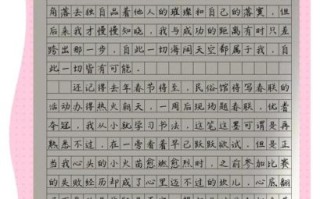 角落去独自品着他人的璀璨和自己的落寞,但
后来我才慢慢知晓,我与成功的距离有时只差
跨出那一步,自此一切海阔天空都属于我,自
此一切皆有可能。
还记得去年春节将至,民俗馆将写春联的
活动办得热火朝天,一周后现场赛春联,优者
夺冠,我从小就学习书法,这笔这墨可谓是再
熟悉不过,在一旁看得跃跃欲试,但是正
当我心头的小火苗愈燃愈烈时,之前参加比赛
的失败经历却成了心里迈不过的坎儿,心底翻